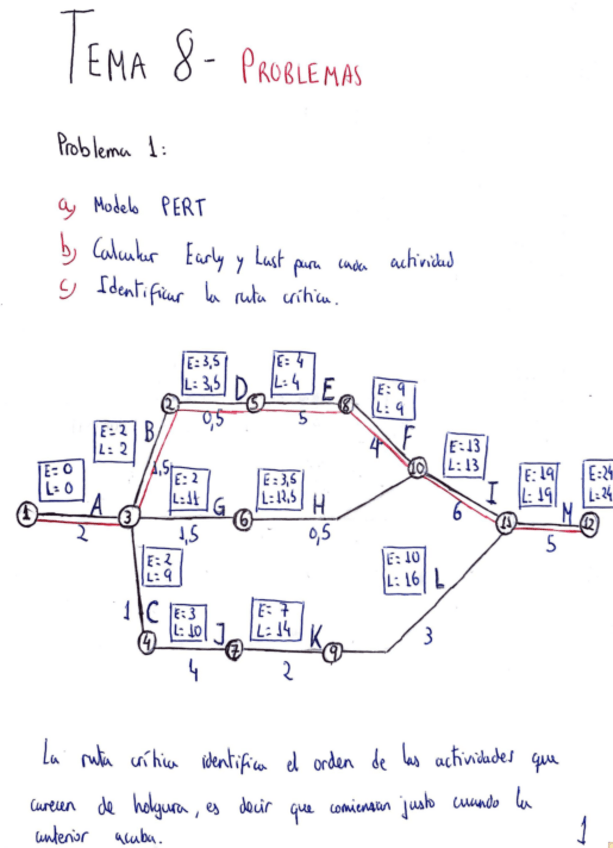 TEMA 8 - PROBLEMAS
Problema 1:
a) Modelo PERT
b) Calcular Early y Last para cada actividad
c) Identificar la ruta crítica.
E: 3,5
L: 3,5
E: 4
L: 4
E: 9
L: 9
2
D
5
E
8
0,5
5
E: 2
L: 2
B
1,5
F
4
E: 13
L: 13
10
I
6
E: 0
L: 0
1
A
2
3
E: 2
L: 11
G
1,5
6
E: 3,5
L: 12,5
H
0,5
E: 19
L: 19
11
M
5
E: 24
L: 24
12
E: 2
L: 9
1
C
4
E: 3
L: 10
J
4
7
E: 7
L: 14
K
2
9
E: 10
L: 16
L
3
La ruta crítica identifica el orden de las actividades que
carecen de holgura, es decir que comienzan justo cuando la
anterior acaba.
1